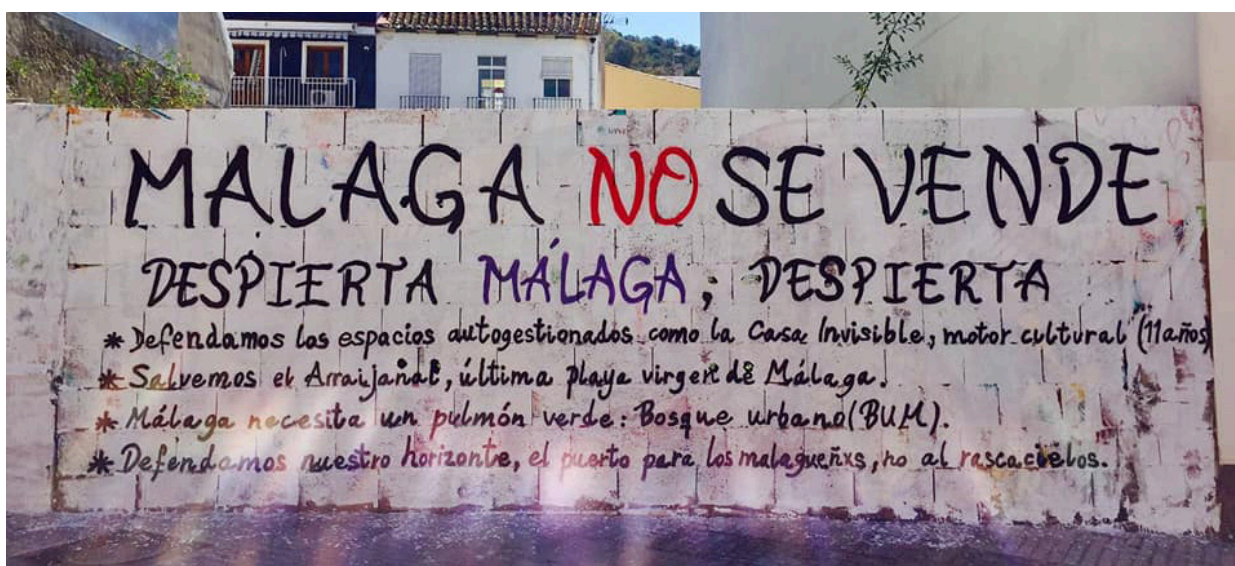 MALAGA NO SE VENDE
DESPIERTA MÁLAGA, DESPIERTA
* Defendamos los espacios autogestionados como la Casa Invisible, motor cultural (11años)
* Salvemos el Arraijanal, última playa virgen de Málaga.
* Málaga necesita un pulmón verde: Bosque urbano (BUM).
* Defendamos nuestro horizonte, el puerto para los malagueñxs, no al rascacielos.